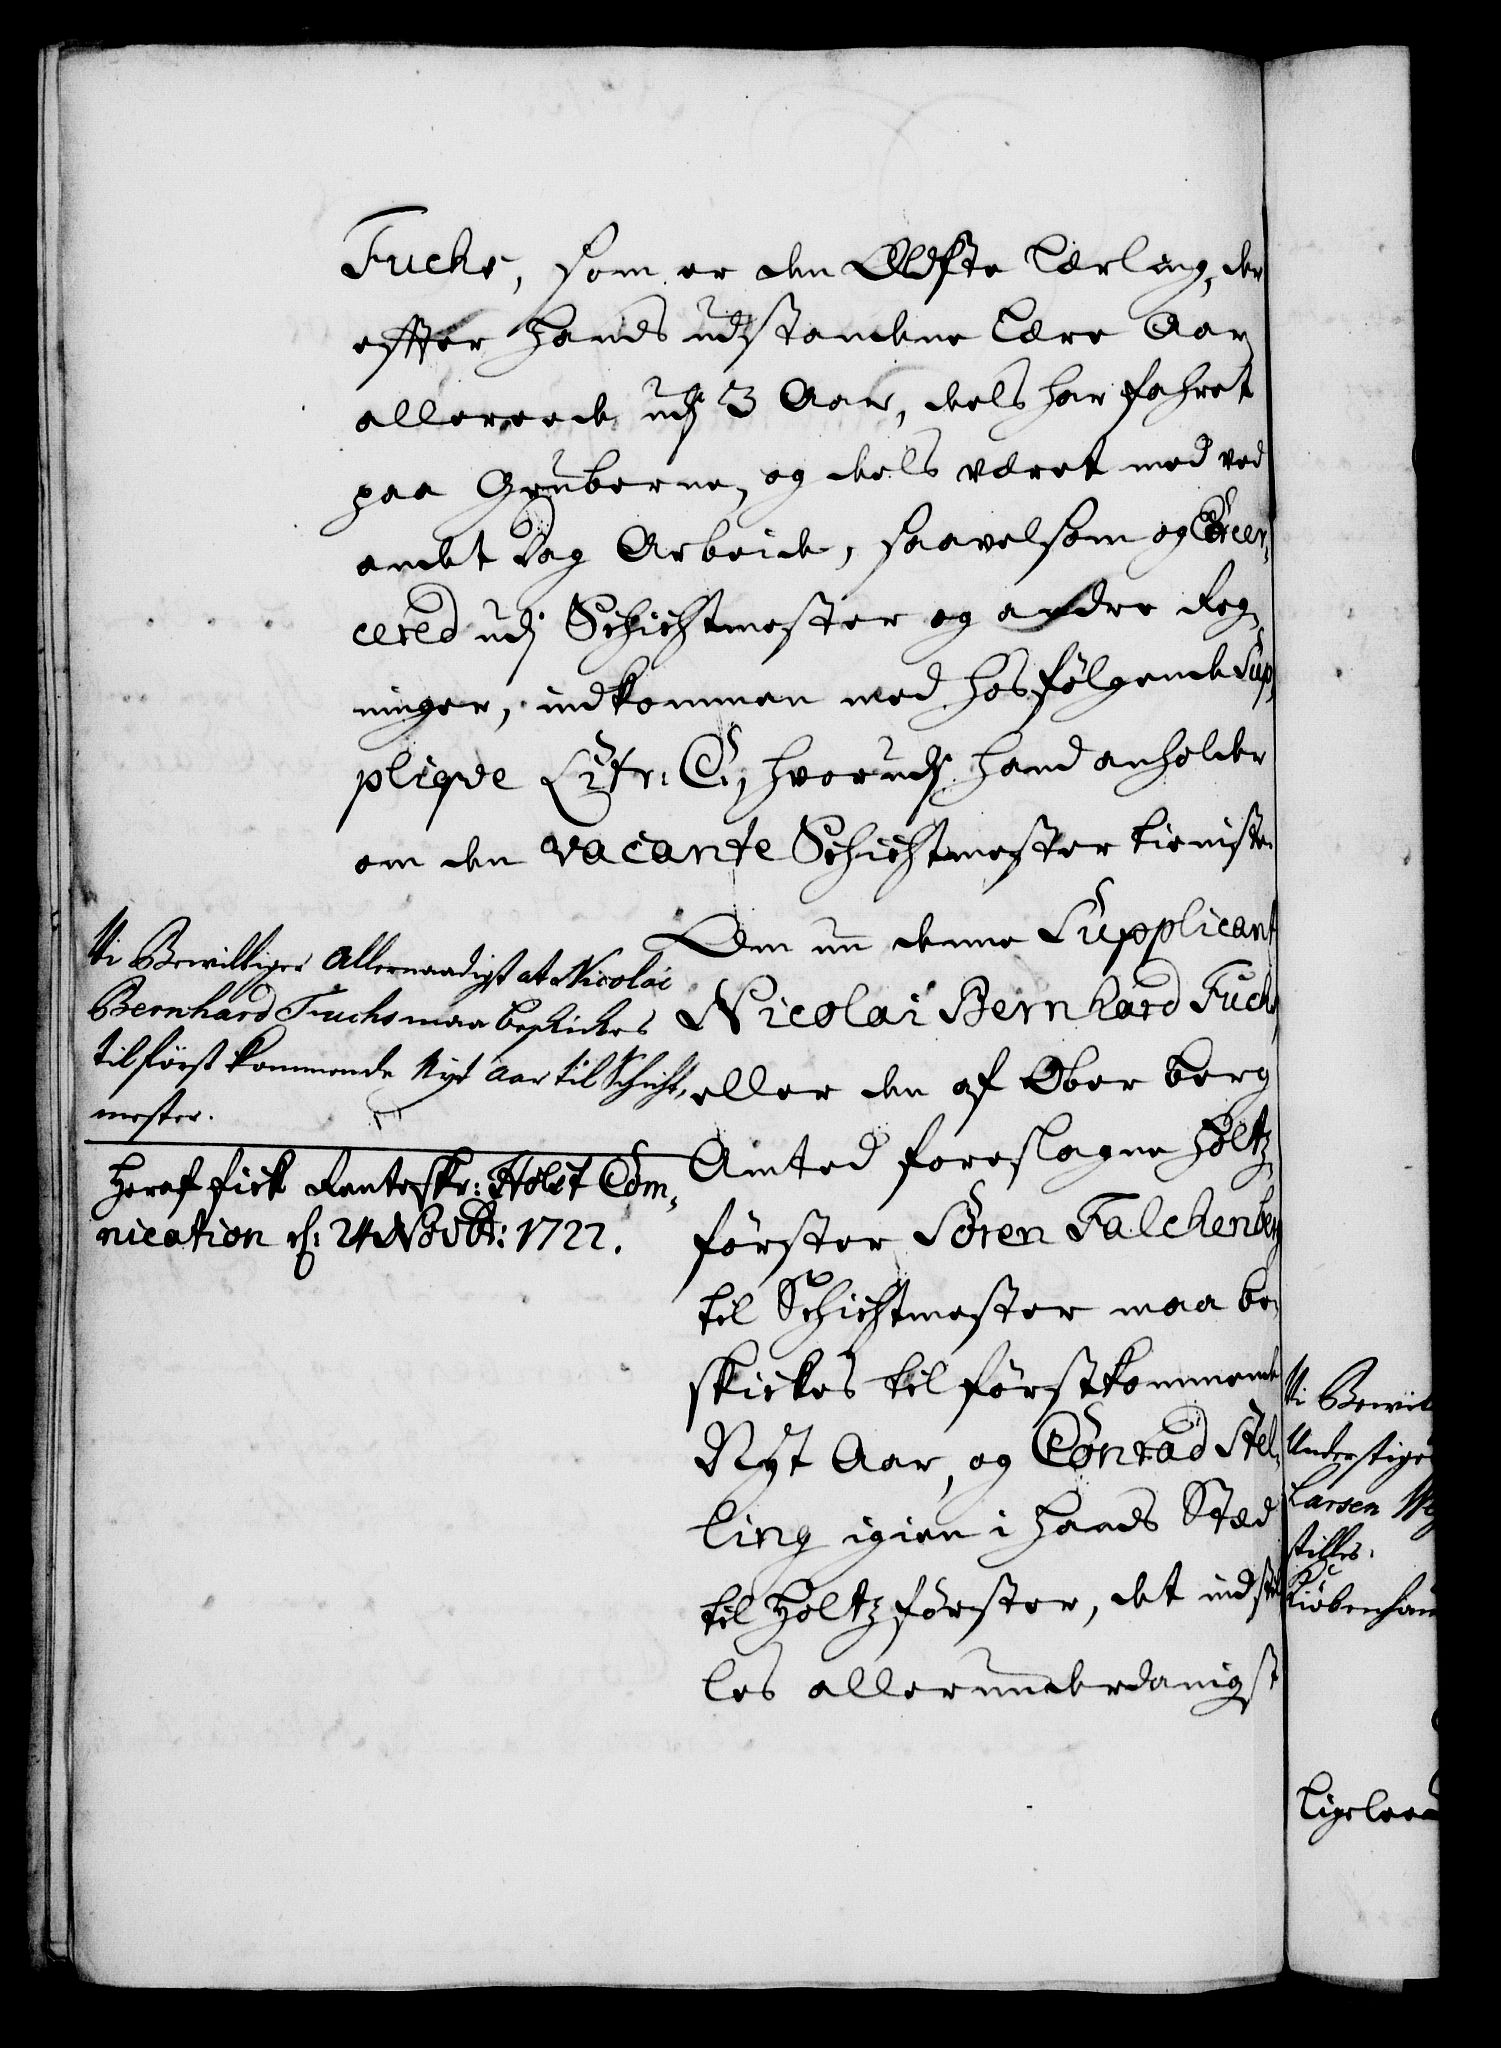 Fuchs, som er den Ældste Lærling, der
effter hands udstandene Lære Aar
allereede udj 3 Aar, deels har fahret
paa Gruberne, og deels været med ved
andet Dag Arbeide, saavelsom og Exer-
cered udj Schichtmester og andre Reg-
ninger, indkommen med hosfølgende Sup-
pliqve Litr: C, hvorudj hand anholder
om den vacante Schichtmester tieniste.
Om nu denne Supplicant
Nicolai Bernhard Fuchs,
eller den af Ober berg
Amted foreslagne Holtz-
førster Søren Falchenberg
til Schichtmester maa be-
skickes til førstkommende
Nyt Aar, og Conrad Stel-
ling igien i hands Sted
til Holtzførster, det indstil-
les allerunderdanigst
Vi Bewilliger Allernaadigst at Nicolai
Bernhard Fuchs maa beskickes
til først kommende Nyt Aar til Schicht-
mester.
Heraf fick Renteskr: Holst Com-
nication d: 24 Novbr: 1722.
Vi Bewil
Understige
Larsen
stilles.
Kiøbenhau
Ligelee